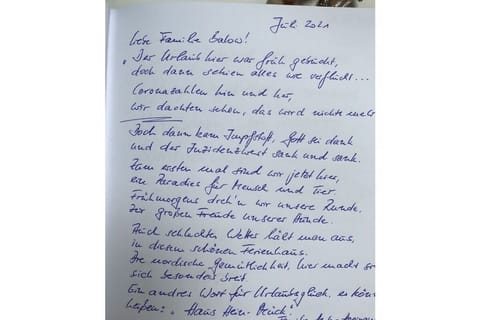 Juli 2021
Liebe Familie Balow!
"Der Urlaub hier war früh gebucht,
doch dann schien alles wie verflucht...
Coronazahlen hin und her,
wir dachten schon, das wird nichts mehr
Doch dann kam Impfstoff, Gott sei dank
und der Inzidenzwert sank und sank.
Zum ersten mal sind wir jetzt hier,
ein Paradies für Mensch und Tier.
Frühmorgens dreh'n wir unsere Runde.
Zur großen Freude unserer Hunde.
Auch schlechtes Wetter hält man aus,
in diesem schönen Ferienhaus.
Die nordische Gemütlichkeit, hier macht s
sich besonders breit.
Ein andres Wort für Urlaubsglück, es kön
heißen: "Haus